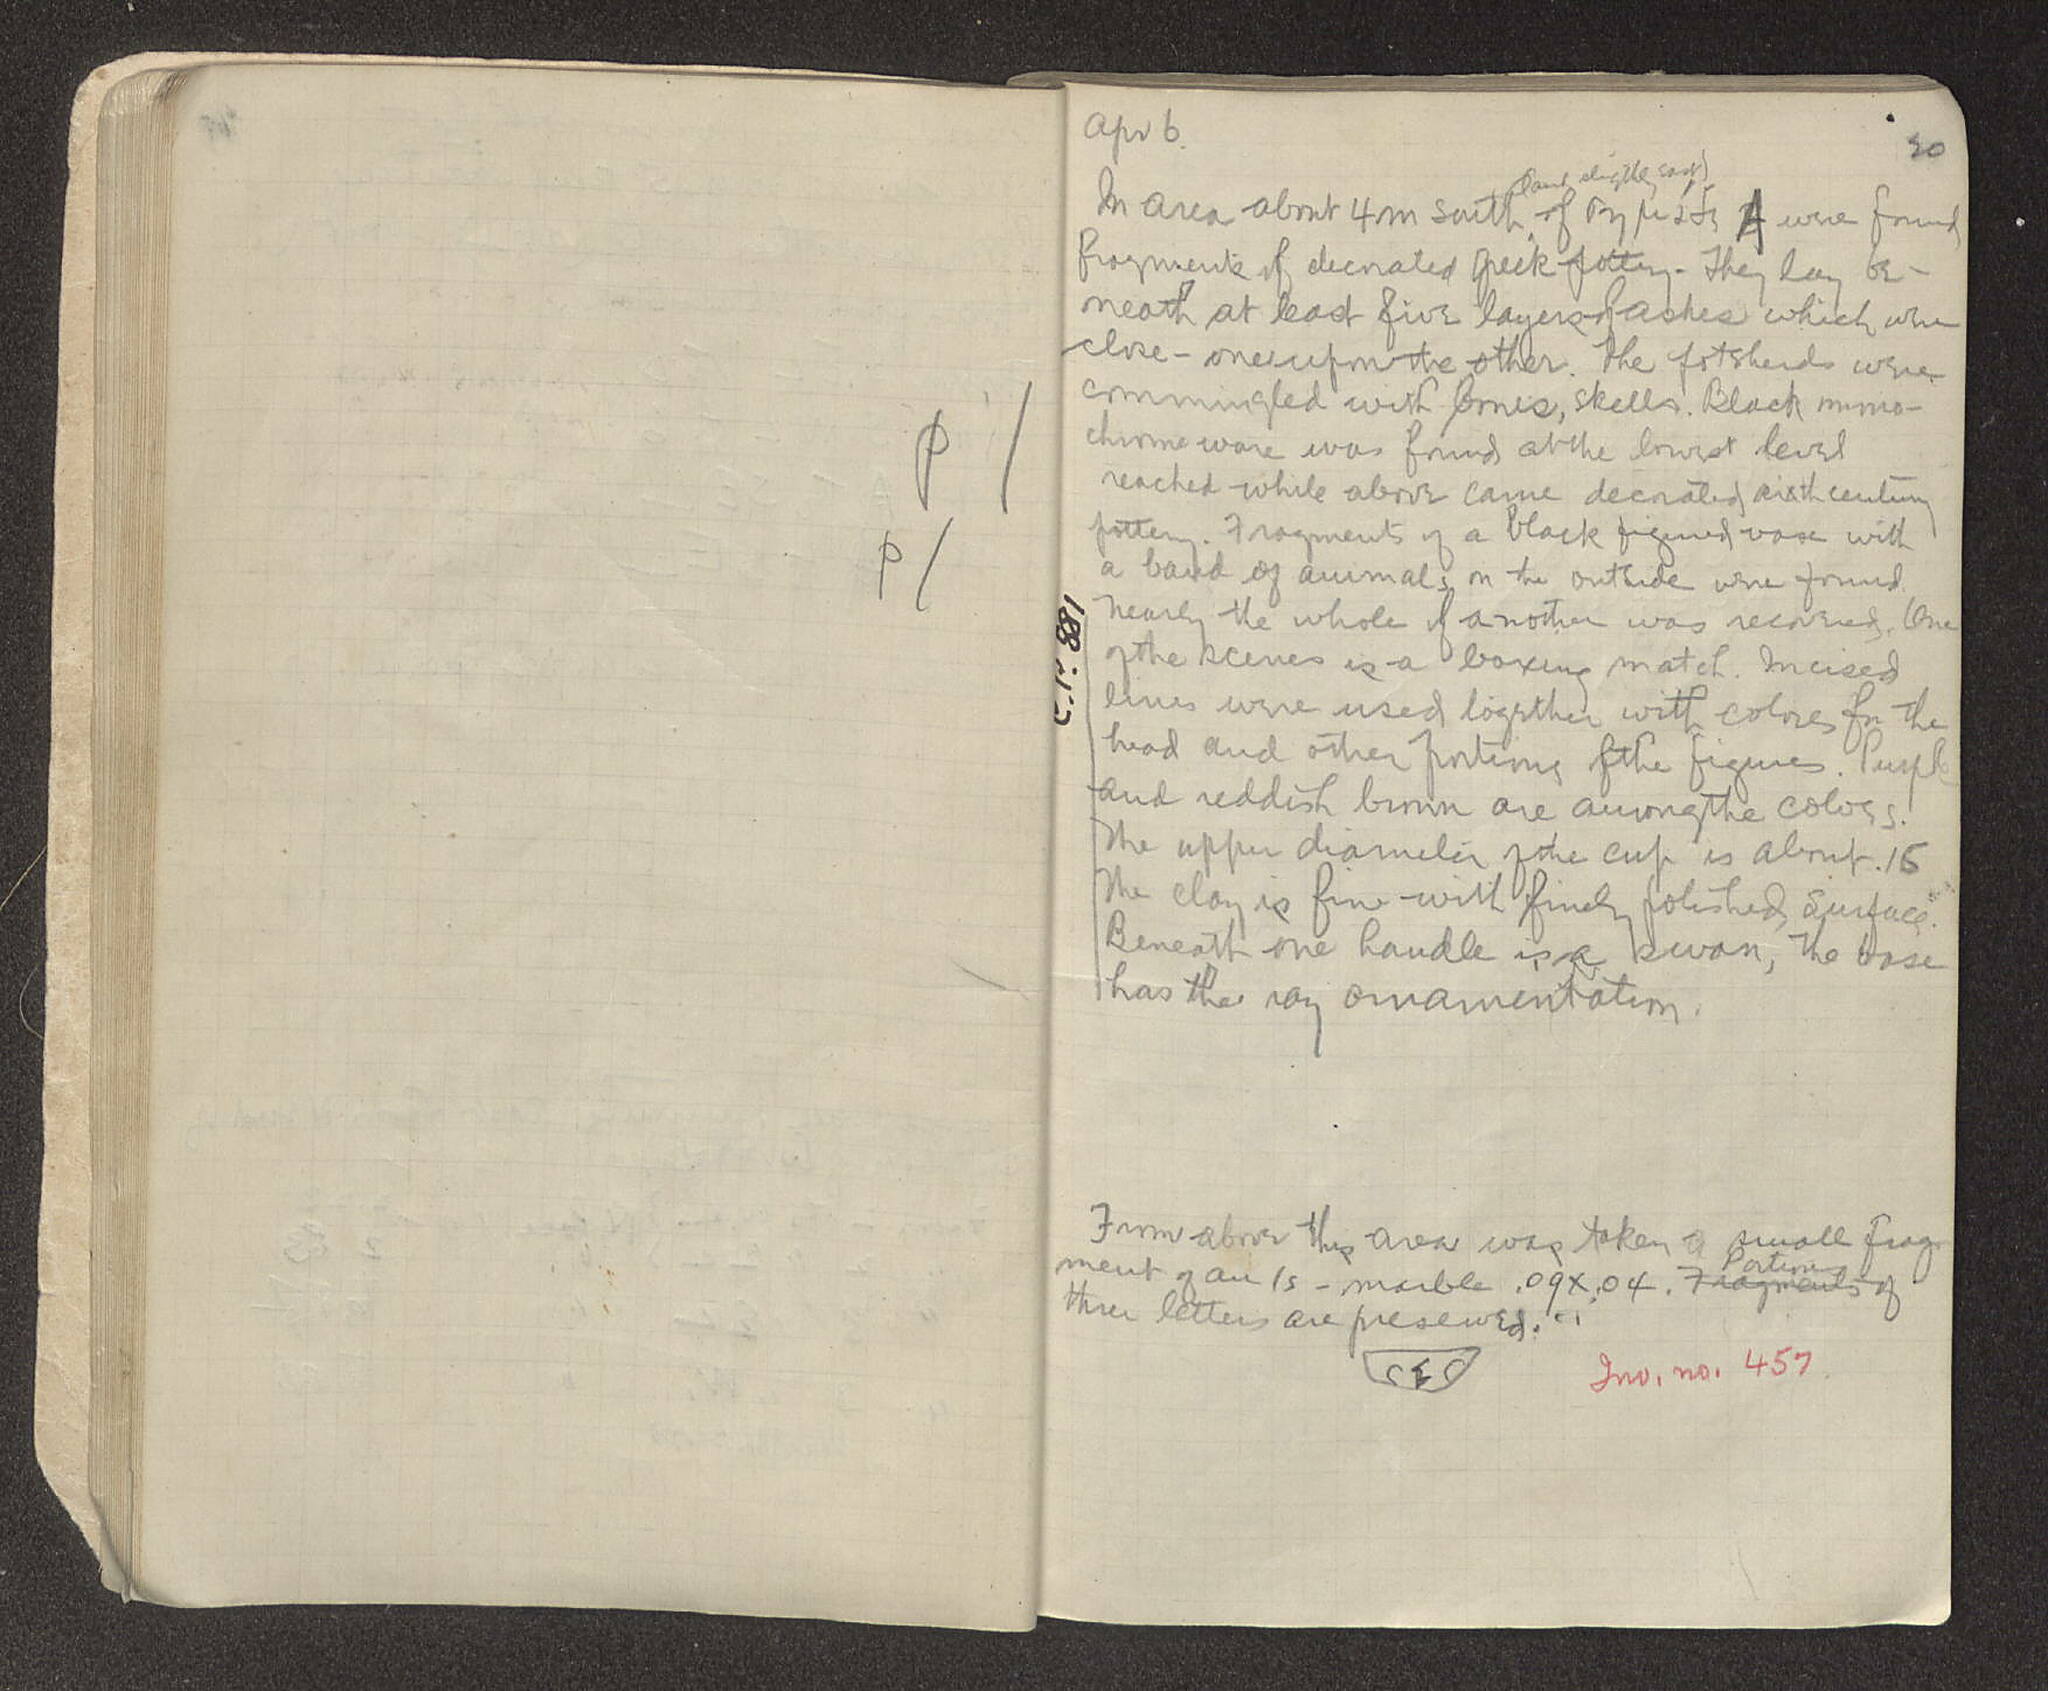 P /
P /
Apr 6.
50
(and slightly east)
In area about 4 m south of σημεῖο A were found
fragments of decorated Greek pottery. They lay be-
neath at least five layers of ashes which were
close - one upon the other. The potsherds were
commingled with bones, shells. Black mono-
chrome ware was found at the lowest level
reached while above came decorated sixth century
pottery. Fragments of a black figured vase with
a band of animals on the outside were found.
Nearly the whole of another was recovered. One
of the scenes is a boxing match. Incised
lines were used together with colors for the
head and other portions of the figures. Purple
and reddish brown are among the colors.
The upper diameter of the cup is about .15
The clay is fine with finely polished surface.
Beneath one handle is a swan, the base
has the ray ornamentation.
From above this area was taken a small frag-
ment of an Is - marble .09 x .04. Fragments of
Portions
three letters are preserved.
Inv. no. 457